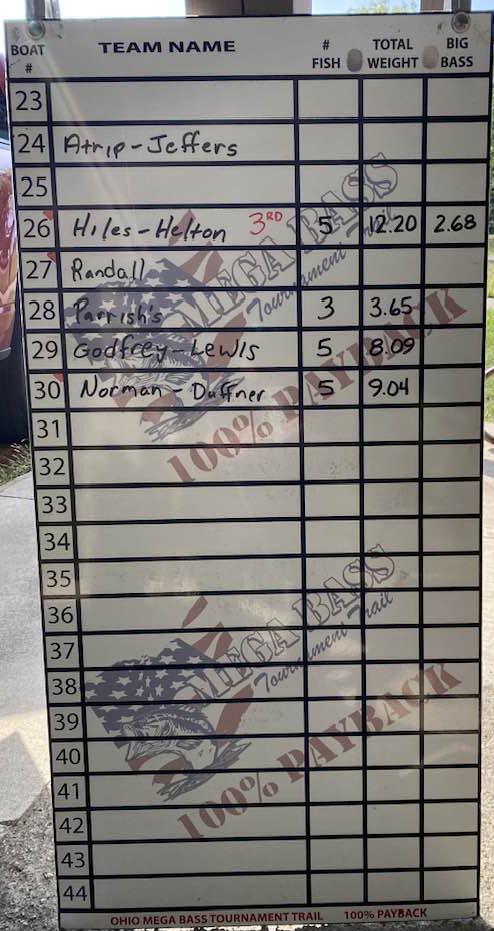 BOAT # TEAM NAME # FISH TOTAL WEIGHT BIG BASS
23
24 Atrip-Jeffers
25
26 Hiles-Helton 3RD 5 12.20 2.68
27 Randall
28 Parrish's 3 3.65
29 Godfrey-Lewis 5 8.09
30 Norman-Duffner 5 9.04
31
32
33
34
35
36
37
38
39
40
41
42
43
44
MEGA BASS
Tournament Trail
100% PAYBACK
MEGA BASS
Tournament Trail
100% PAYBACK
OHIO MEGA BASS TOURNAMENT TRAIL 100% PAYBACK